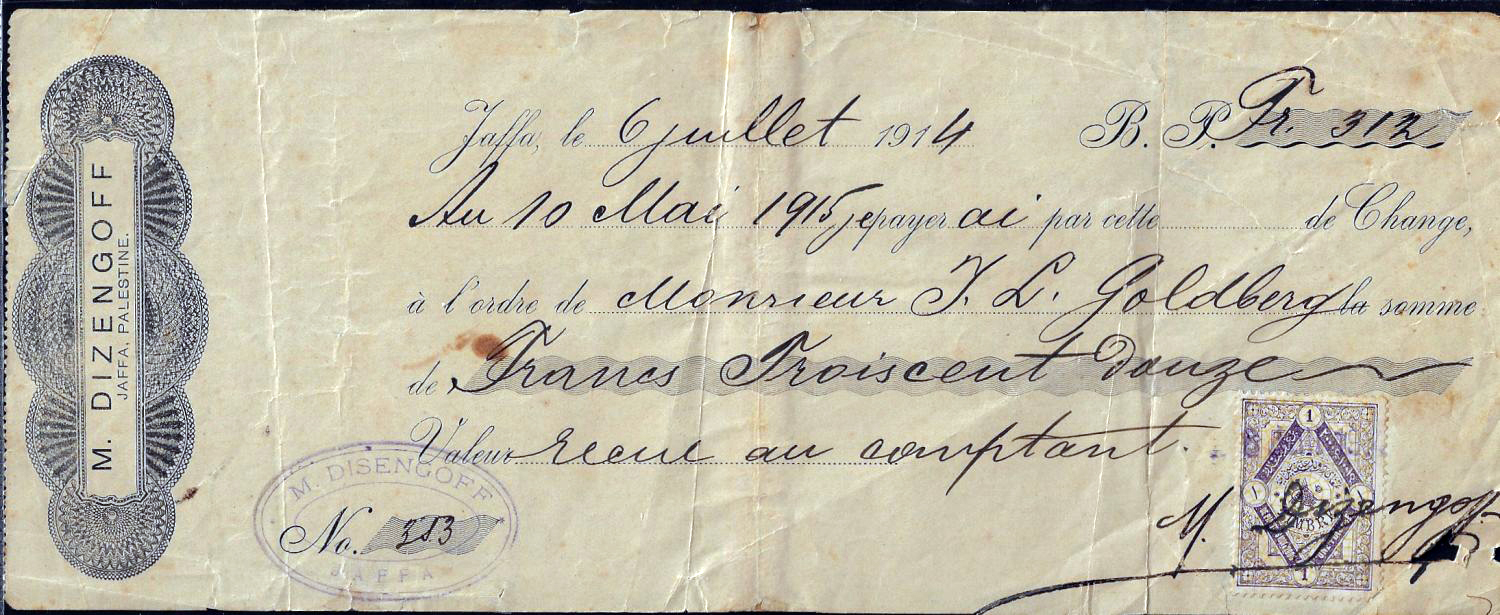 M. DIZENGOFF
JAFFA, PALESTINE.
Jaffa, le 6 juillet 1914 B. P. Fr. 312
Au 10 Mai 1915 je payerai par cette de Change,
à l'ordre de Monsieur J. L. Goldberg la somme
de Francs Troiscent Douze
Valeur recue au comptant.
M. DISENGOFF
No. 353
JAFFA
M. Dizengoff
1
1